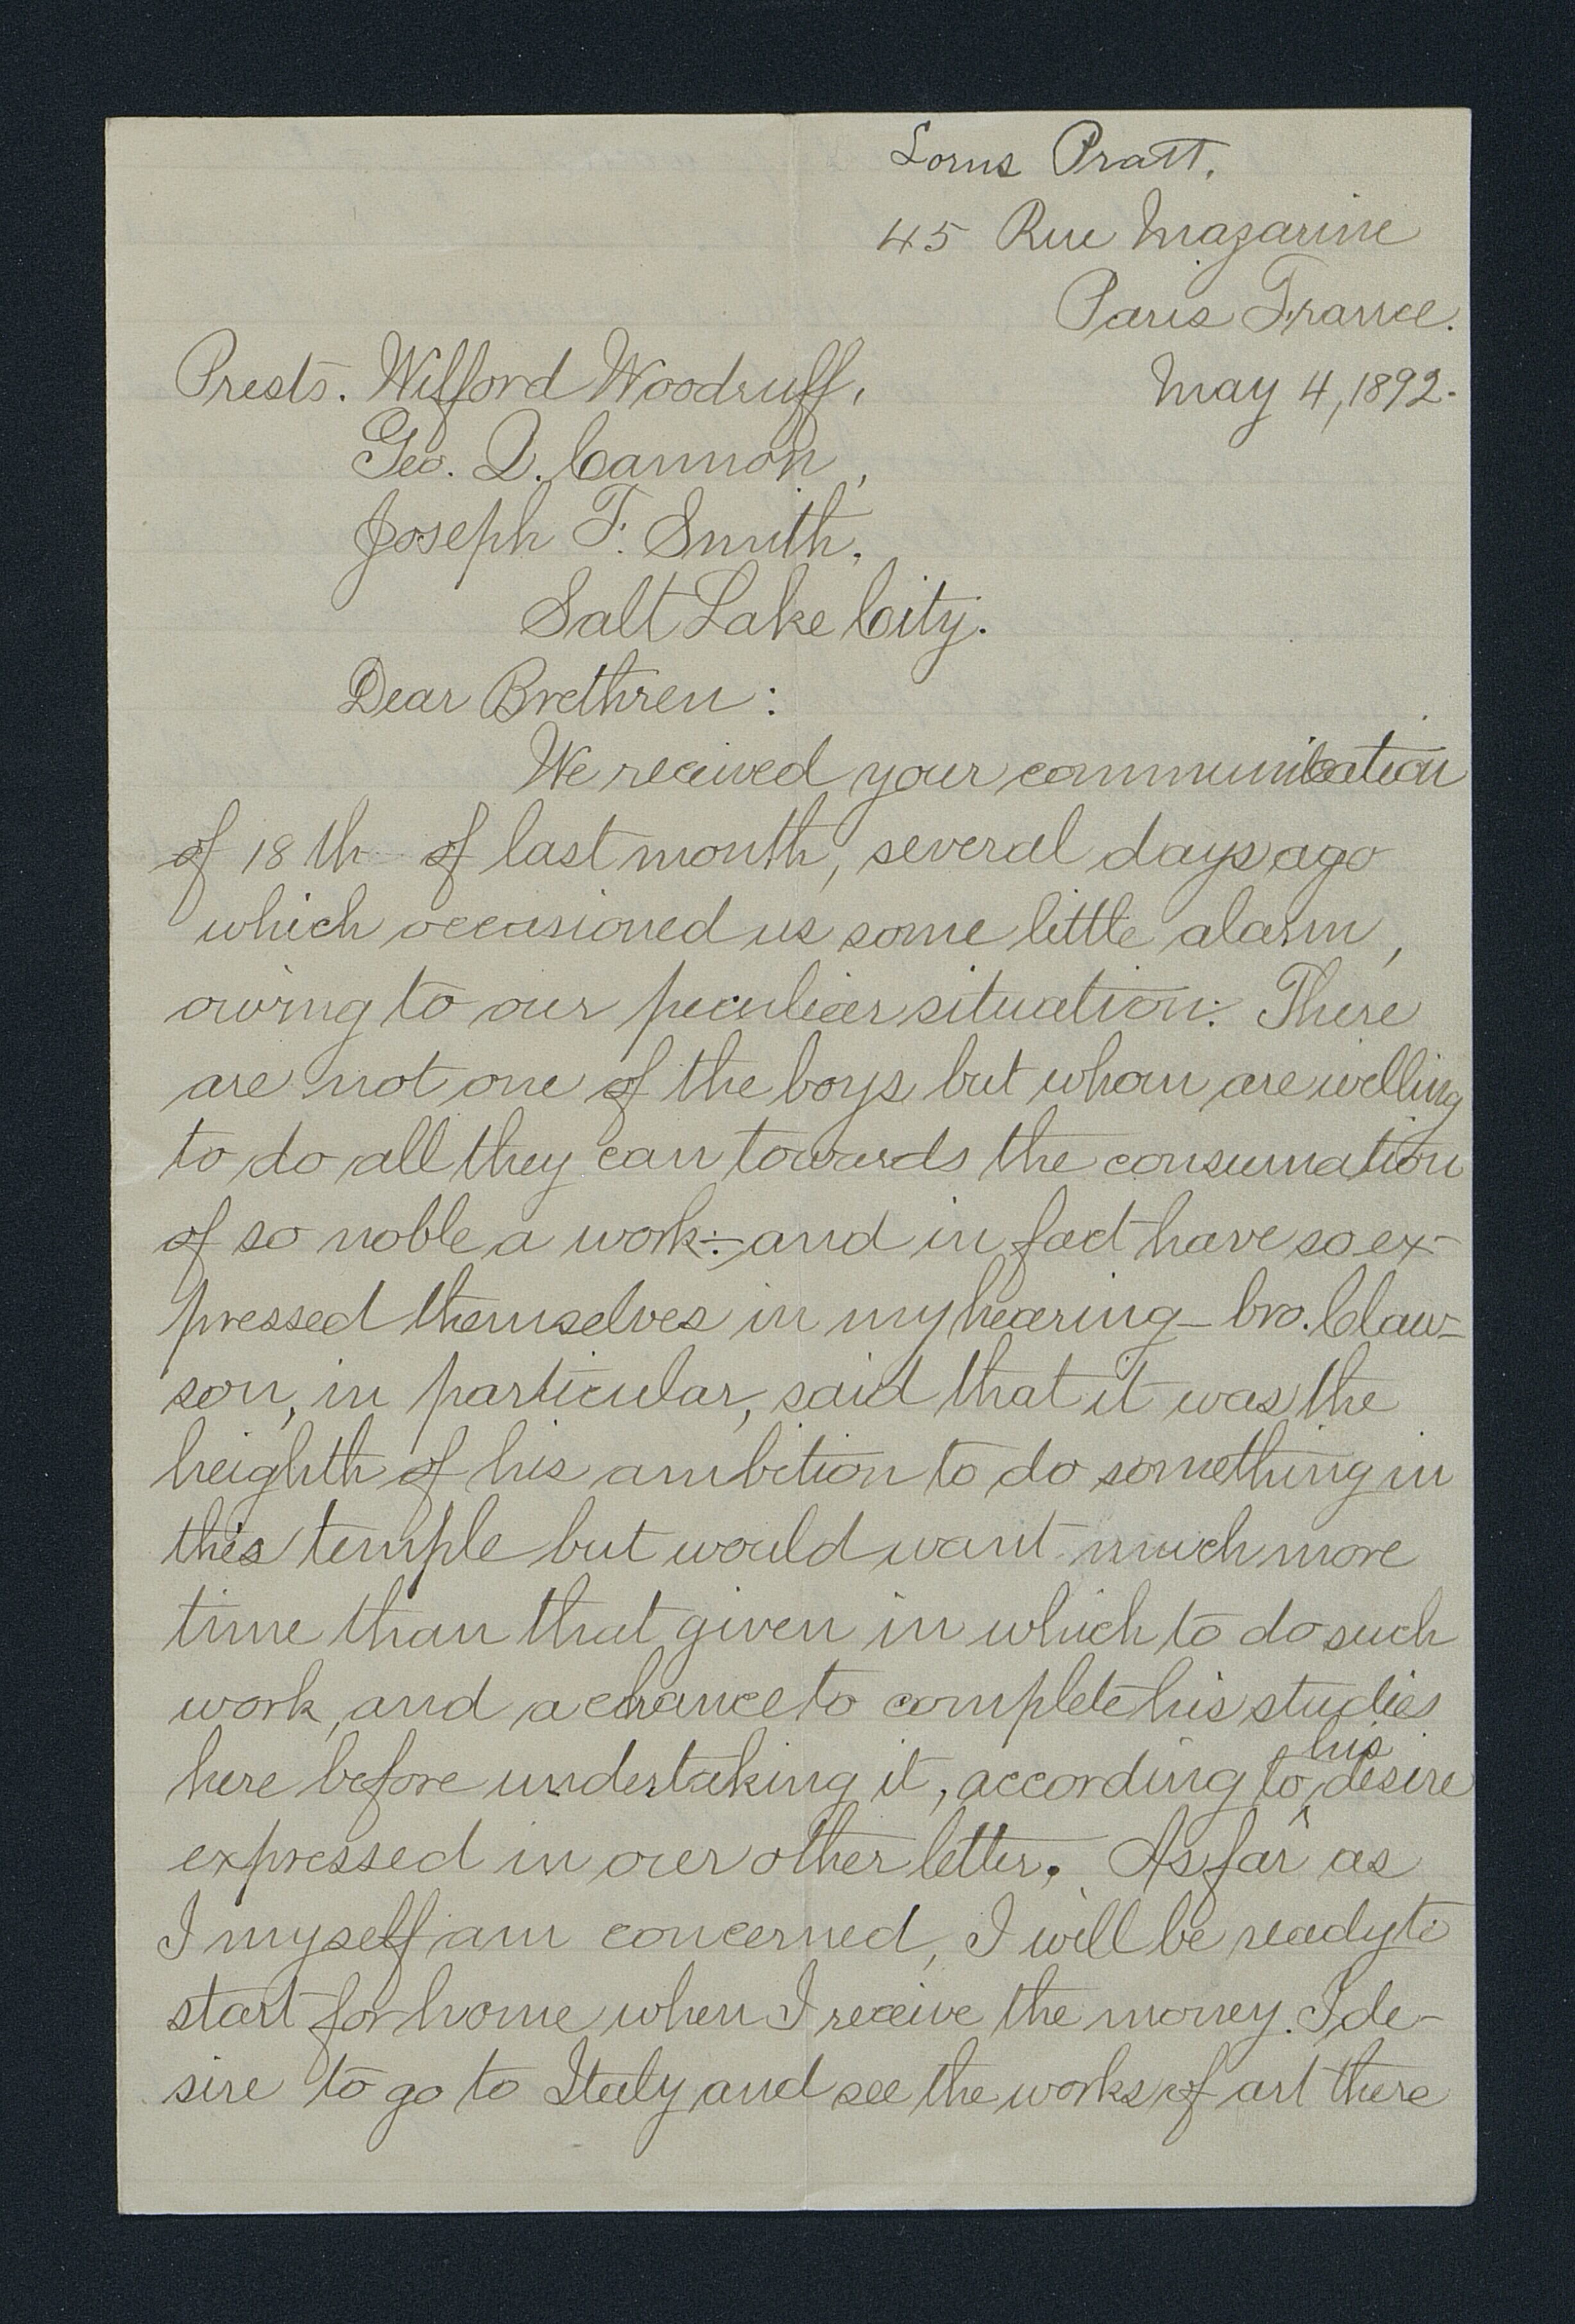 Lorus Pratt.
45 Rue Mazarine
Paris France.
Prests. Wilford Woodruff, May 4, 1892.
Geo. Q. Cannon,
Joseph F. Smith.
Salt Lake City.
Dear Brethren:
We received your communication
of 18th of last month, several days ago
which occasioned us some little alarm,
owing to our peculiar situation. There
are not one of the boys but whom are willing
to do all they can towards the consumation
of so noble a work:—and in fact have so ex-
pressed themselves in my hearing—bro. Claw-
son, in particular, said that it was the
heighth of his ambition to do something in
this temple but would want much more
time than that given in which to do such
work, and a chance to complete his studies
here before undertaking it, according to his desire
expressed in our other letter. As far as
I myself am concerned, I will be ready to
start for home when I receive the money. I de-
sire to go to Italy and see the works of art there